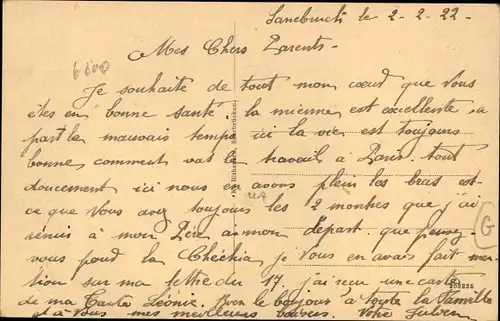 le 2-2-22
Mes Chers Parents-
6600
Je souhaite de tout mon cœur que Vous
êtes en bonne santé. la mienne est excellente a
part le mauvais temps ici la vie est toujours
bonne, comment vas le travail à Paris. tout
doucement ici nous en avons plein les bras est-
ce que Vous avez toujours les 2 montres que j'ai
remis à mon Père a mon départ. que pensez-
vous pour la Chechia je Vous en avais fait men-
tion sur ma lettre du 17 j'ai reçu une carte
de ma Tante Léonie. bonjour à toute la Famille
et à Vous mes meilleurs baisers. Votre
G